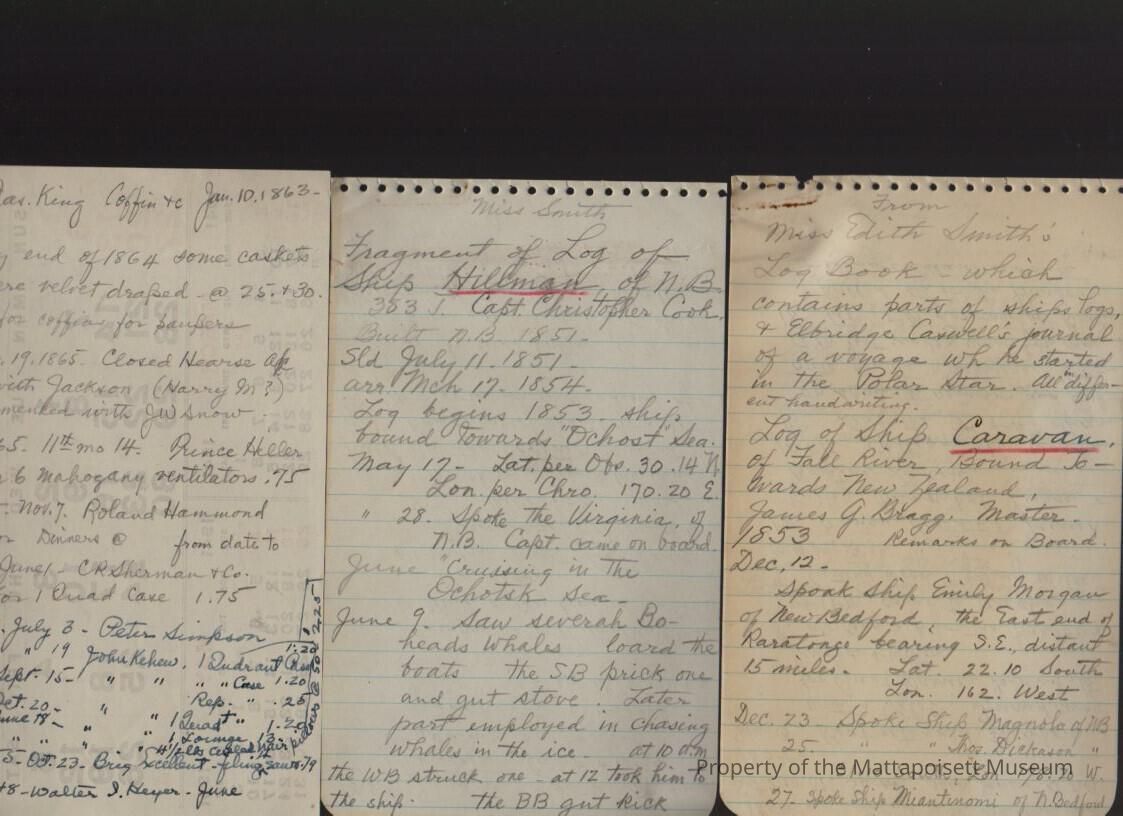 as. King Coffin &c Jan. 10. 1863-
y end of 1864 some caskets
ere velvet draped - @ 25. + 30.
for coffin, for paupers
. 19. 1865. Closed Hearse
with Jackson (Harry M?)
mented with J W Snow.
65. 11th mo 14. Prince Heller
6 mahogany ventilators .75
- Nov. 7. Roland Hammond
Dinners @ from date to
June 1 - C R Sherman & Co.
or 1 Quad Case 1.75
July 3 - Peter Simpson
" 19 John Kehew. 1 Quadrant 1.20
Sept. 15 - " " " " Case 1.20
Oct. 20 - " Rep. " .25
June 18 - " " 1 Quad " 1.20
" " " " 1 Lounge 13-
5 - Oct. 23 - Brig Excellent - filing saws
48 - Walter S. Heyer - June
Miss Smith
Fragment of Log of
Ship Hillman, of N.B.
383 T. Capt. Christopher Cook.
Built N.B. 1851-
Sld July 11. 1851-
arr Mch 17. 1854-
Log begins 1853 ship
bound towards "Ochost" Sea.
May 17 - Lat. per Obs. 30.14 N.
Lon. per Chro. 170.20 E.
" 28. Spoke the Virginia, of
N.B. Capt. came on board.
June "Crussing in the
Ochotsk Sea -
June 9. Saw severah Bo-
heads whales loard the
boats the SB prick one
and gut stove. Later
part employed in chasing
whales in the ice - at 10 am
the WB struck one - at 12 took him to
the ship. the BB gut kick
From
Miss Edith Smith's
Log Book - which
contains parts of ships logs,
& Elbridge Caswell's journal
of a voyage wh he started
in the Polar Star. All differ-
ent handwriting.
Log of Ship Caravan,
of Fall River, Bound To-
wards New Zealand,
James G. Bragg. Master.
1853 Remarks on Board.
Dec, 12 -
Spoak Ship Emily Morgan
of New Bedford, the East end of
Raratongo bearing S.E., distant
15 miles. Lat. 22.10 South
Lon. 162. West
Dec. 23 Spoke Ship Magnola of NB
25. " " Thos. Dickason "
W.
27. Spoke Ship Miantinomi of N. Bedford
Property of the Mattapoisett Museum